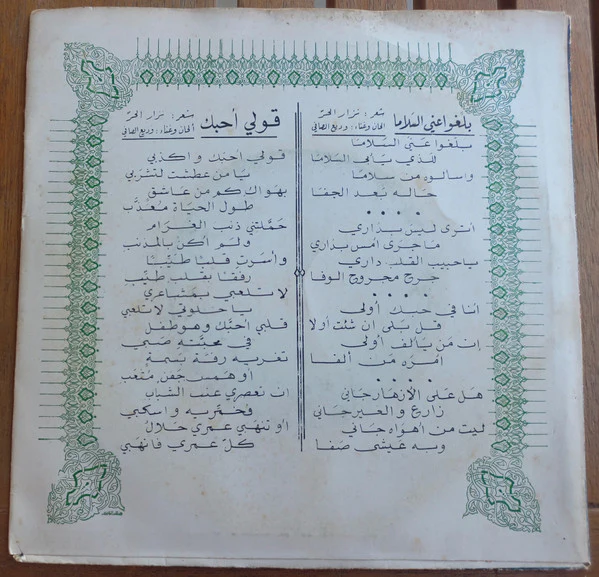 بلغوا عني السلاما
شعر: نزار الحرّ
الحان وغناء: وديع الصافي
بلغوا عني السلاما
للذي يأبى السلاما
واسألوه من سلاما
حاله بعد الجفا
أترى ليس بداري
ما جرى أمس بداري
يا حبيب القلب داري
جرح مجروح الوفا
أنا في حبك أولى
قل بلى ان شئت أو لا
إن من يألف أولى
امره من ألفا
هل على الأزهار جاني
زارع والغير جاني
ليت من أهواه جاني
وبه عيشي صفا
قولي أحبك
شعر: نزار الحرّ
الحان وغناء: وديع الصافي
قولي احبك واكذبي
يا من عطشت لتشربي
بهواك كم من عاشق
طول الحياة معذب
حمّلتني ذنب الغرام
ولم أكن بالمذنب
وأسرت قلبا طيّبا
رفقا بقلب طيّب
لا تلعبي بمشاعري
يا حلوتي لا تلعبي
قلبي احبّك وهو طفل
في محبّته صبي
تغريه رفّة بسمة
أو همس جفن متعب
ان تعصري عنب الشباب
فخمّريه واسكبي
أو تنهبي عمري حلالٌ
كلّ عمري فانهبي